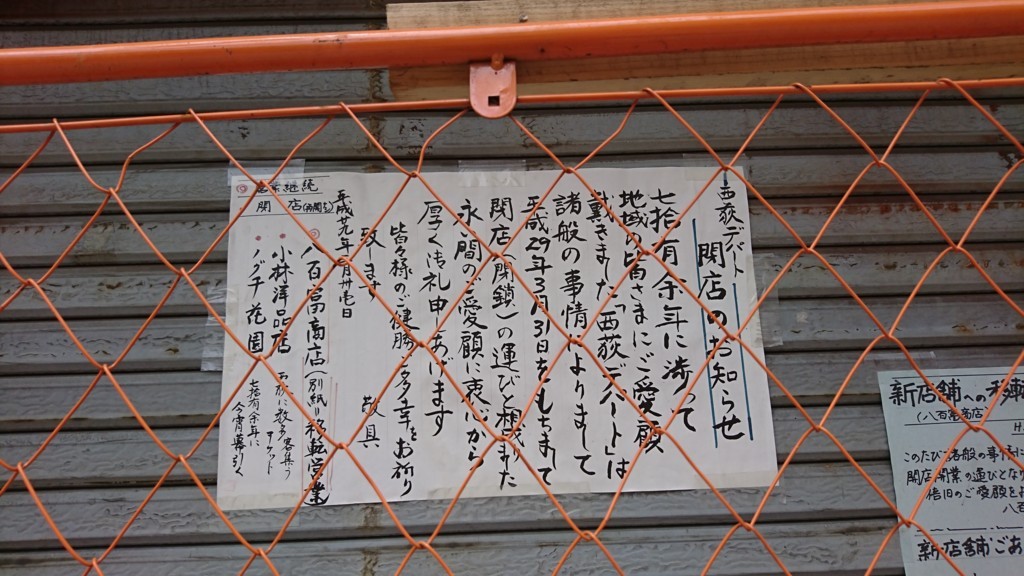 西荻デパート
閉店のお知らせ
七拾有余年に渉って
地域の皆さまにご愛顧
戴きました「西荻デパート」は
諸般の事情によりまして
平成29年3月31日をもちまして
閉店(閉鎖)の運びと相成りました
永い間のご愛顧に衷心から
厚く御礼申しあげます
皆々様のご健勝ご多幸をお祈り
致します
敬具
平成廿九年 月卅壱日
◎営業継続
閉店
八百富商店(別紙 移転営業
小林洋品店
ノグチ花園
お族に数多客集う
七拾有余年に
今宵幕引く
新店舗への
(八百富商店
このたび諸般の事情に
閉店開業の運びとな
倍旧のご愛顧を
八百
新店舗ごあ